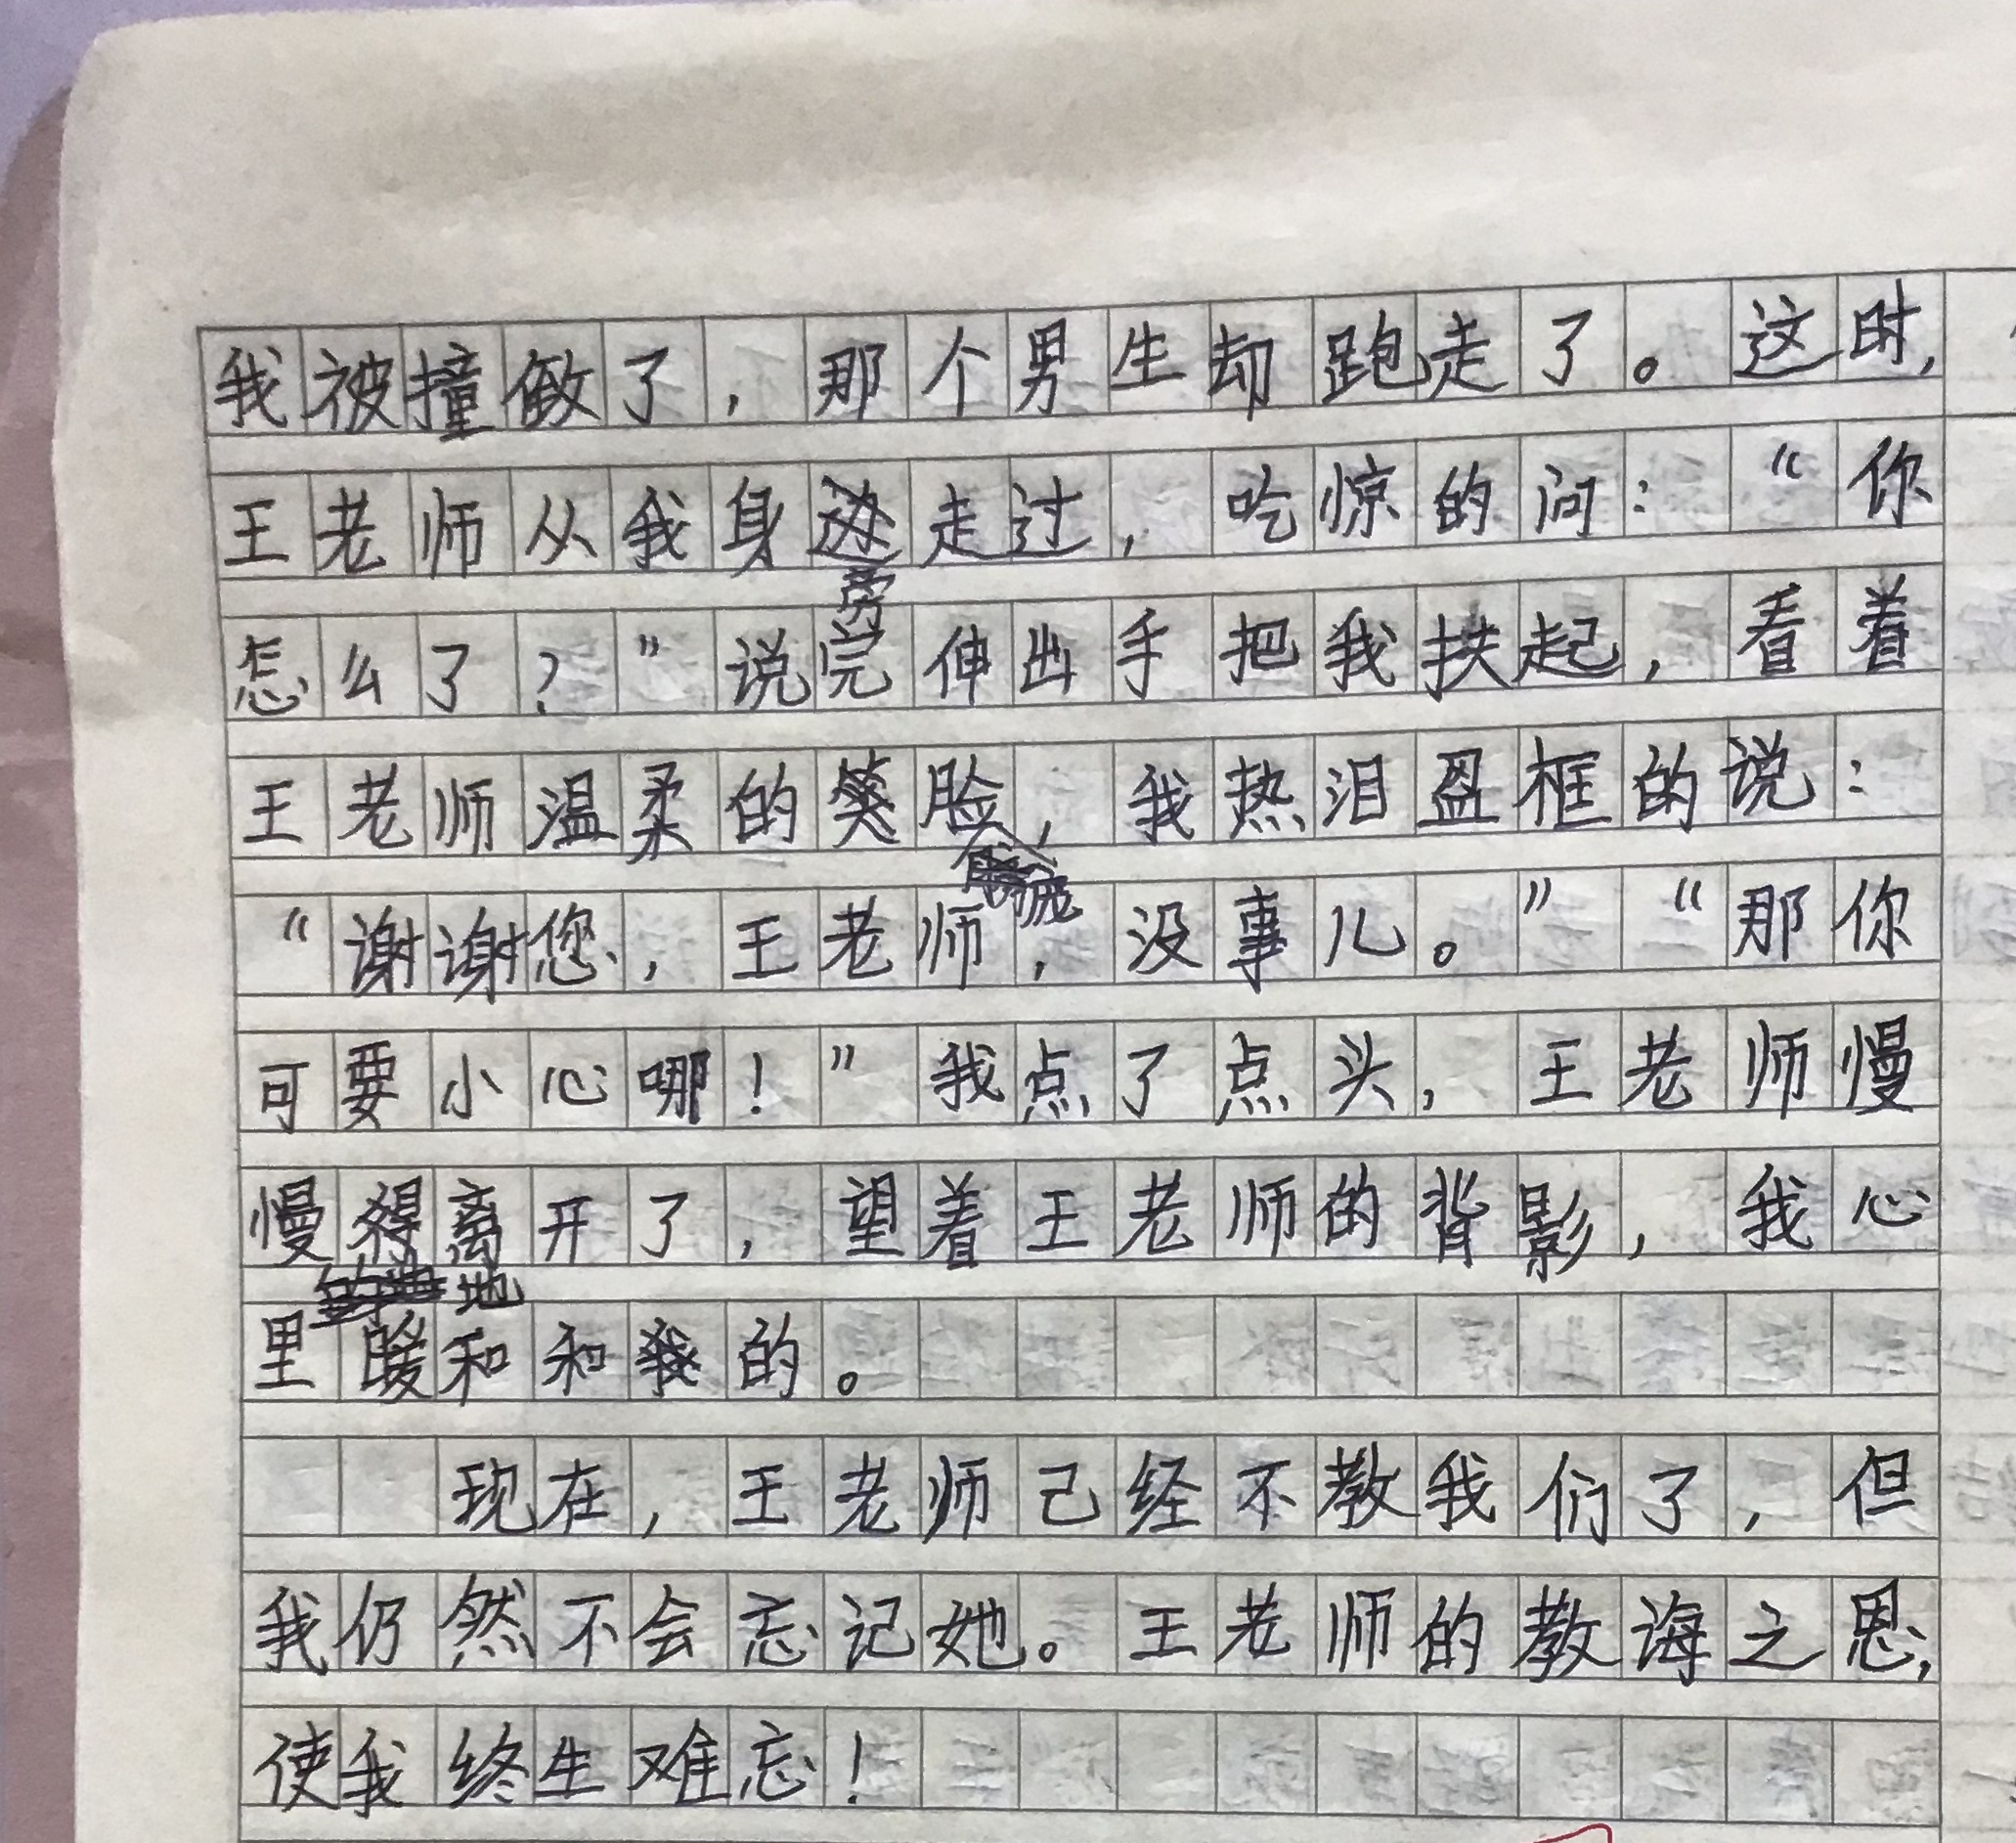 我被撞傲了，那个男生却跑走了。这时，
王老师从我身旁走过，吃惊的问：“你
怎么了？”说完伸出手把我扶起，看着
王老师温柔的笑脸，我热泪盈框的说：
“谢谢您，王老师，没事儿。”“那你
可要小心哪！”我点了点头，王老师慢
慢地离开了，望着王老师的背影，我心
里暖和和的。
现在，王老师己经不教我们了，但
我仍然不会忘记她。王老师的教诲之恩，
使我终生难忘！